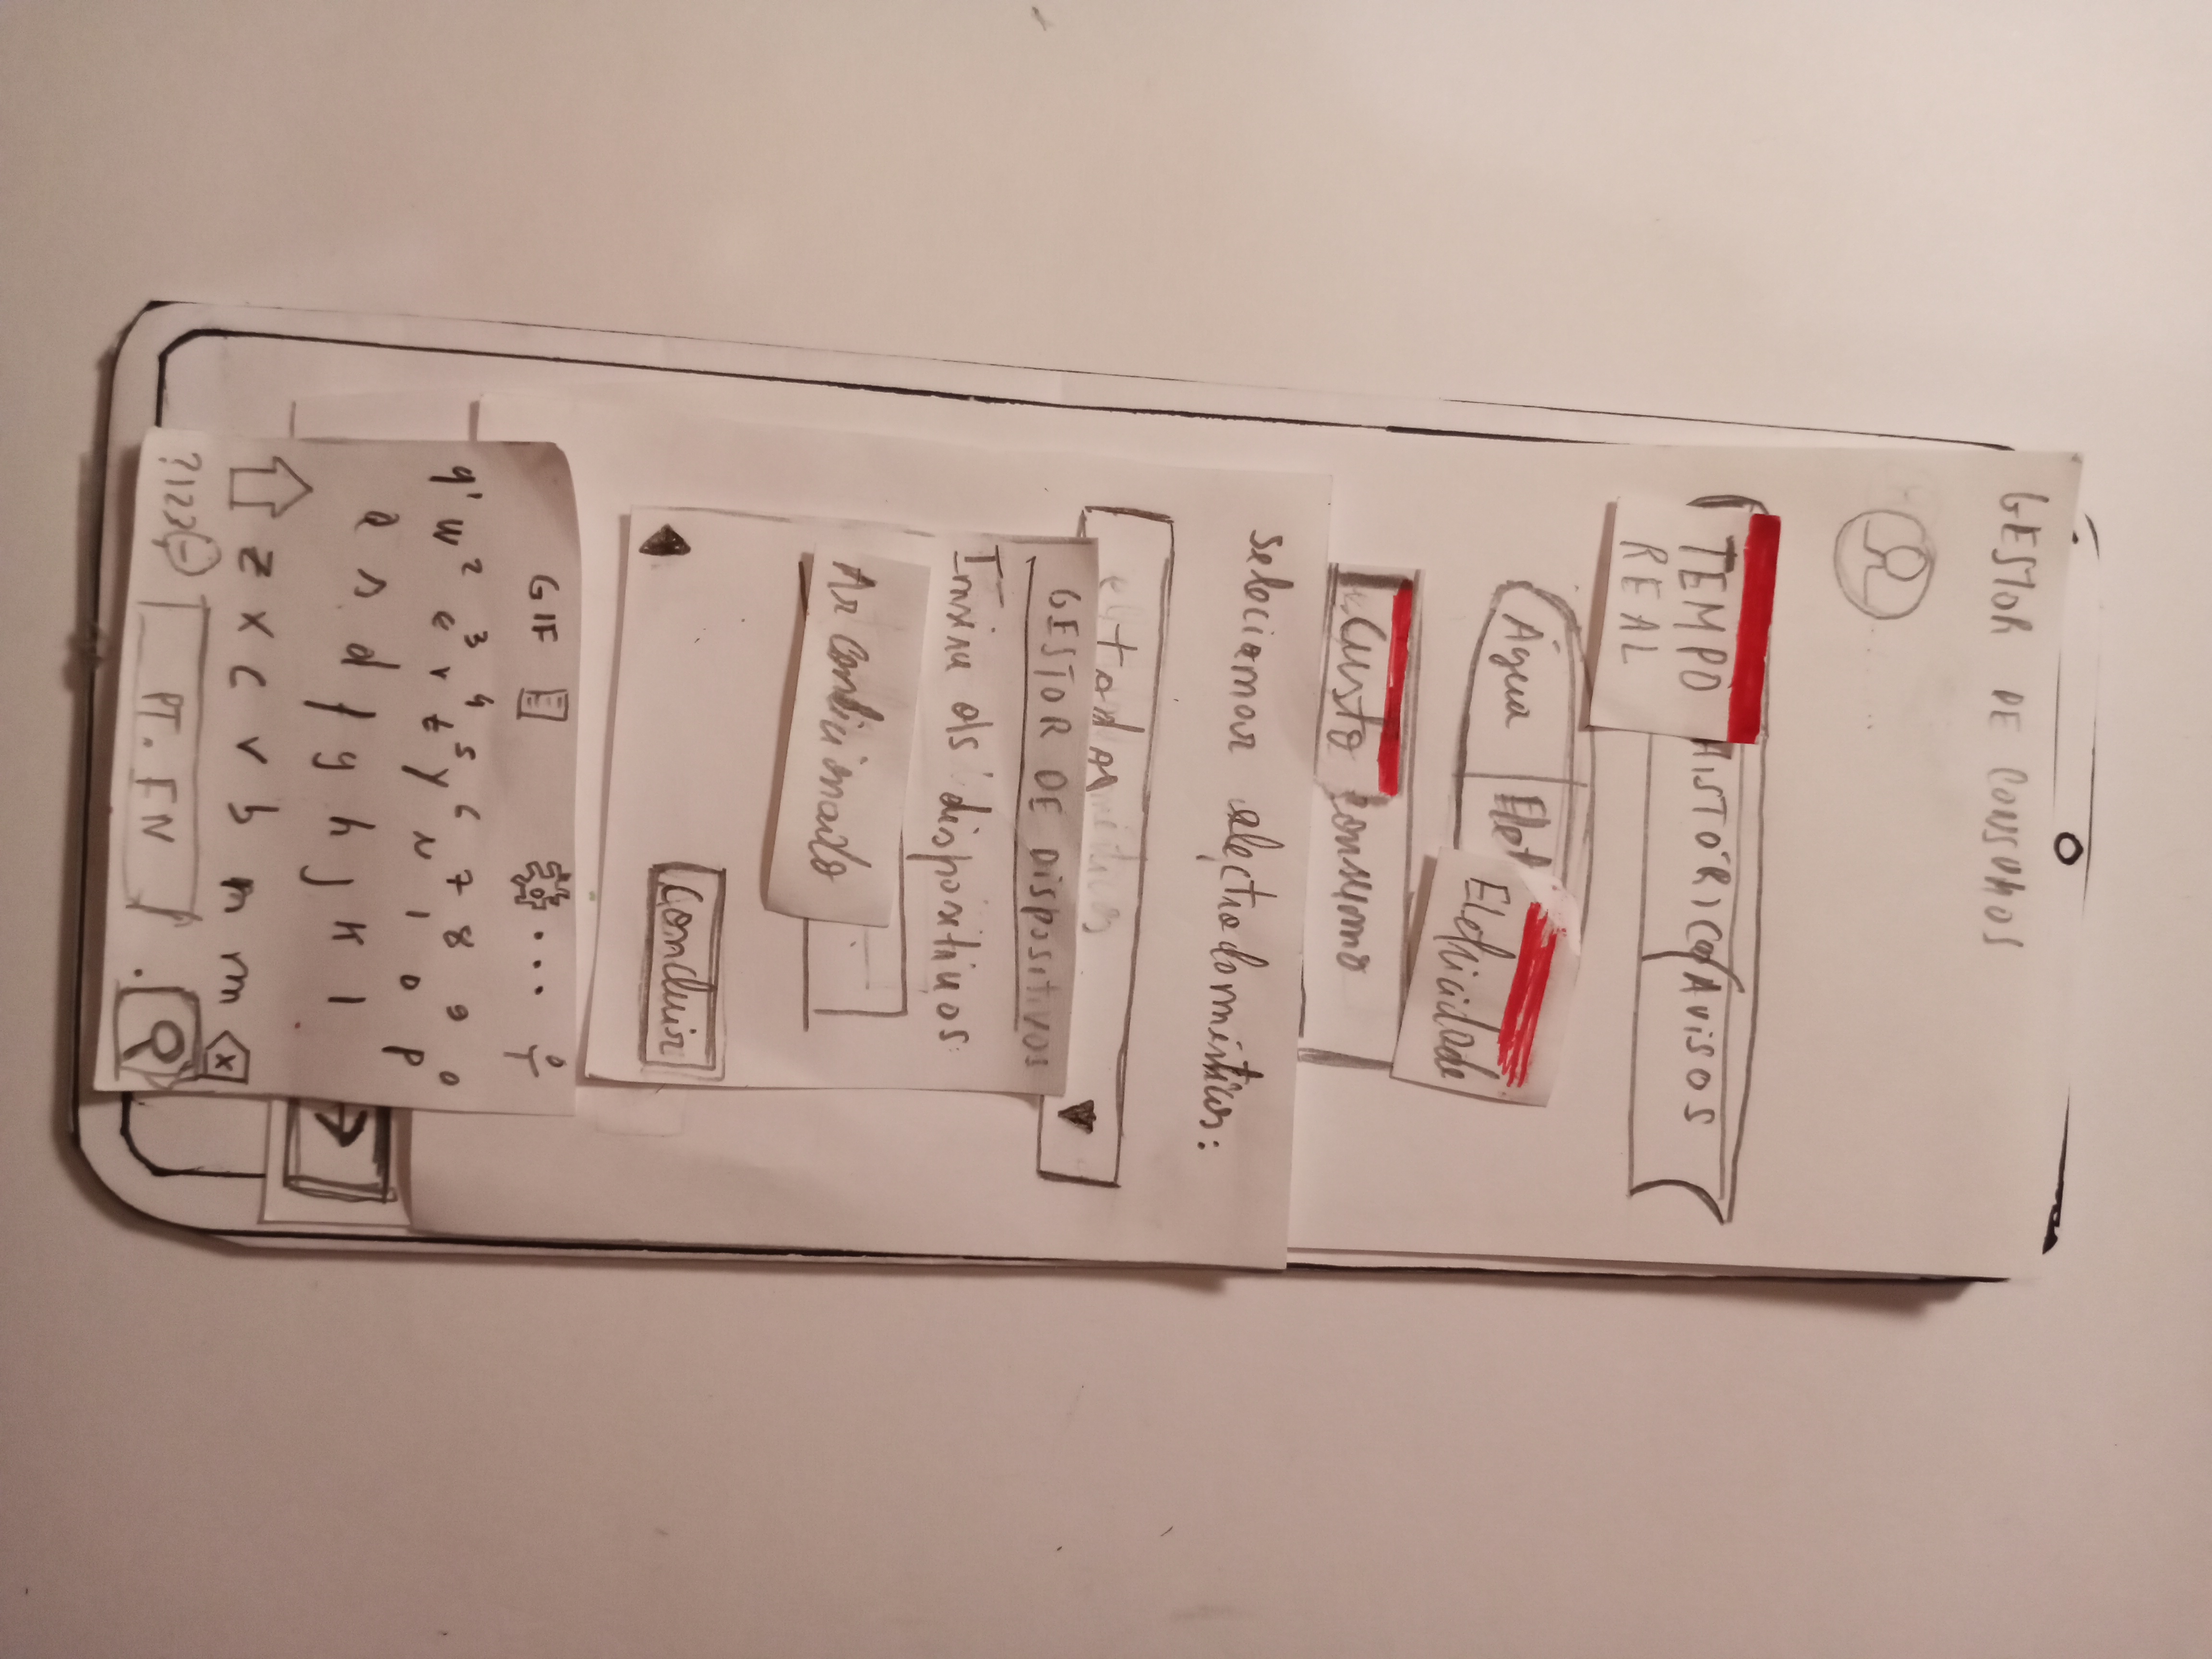 GESTOR DE CONSUMOS
TEMPO
REAL
HISTÓRICO
AVISOS
Água
Elet
Eletricidade
Custo
Consumo
Selecionar electrodomésticos:
GESTOR DE DISPOSITIVOS
Insira os dispositivos:
Ar condicionado
Concluir
GIF
q w e r t y u i o p
1 2 3 4 5 6 7 8 9 0
a s d f g h j k l
z x c v b n m x
?123
PT. EN
.